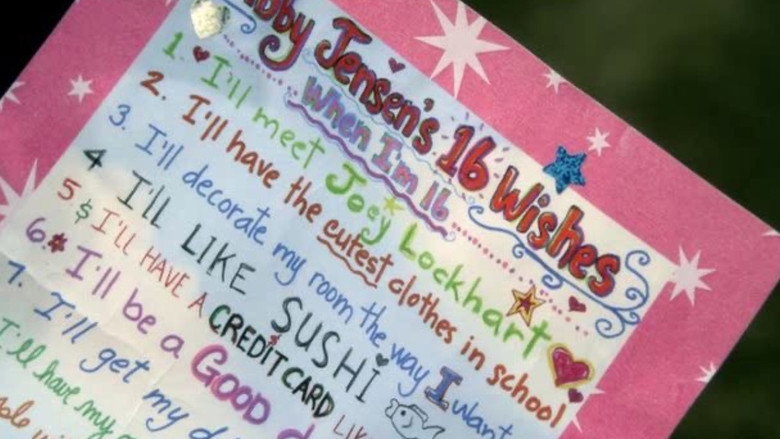 Jensen's 16 Wishes
When I'm 16
1. I'll meet Joey Lockhart
2. I'll have the cutest clothes in school
3. I'll decorate my room the way I want
4 I'LL LIKE SUSHI
5 $ I'LL HAVE A CREDIT CARD
6. I'll be a GOOD
7. I'll get my
I'll have my